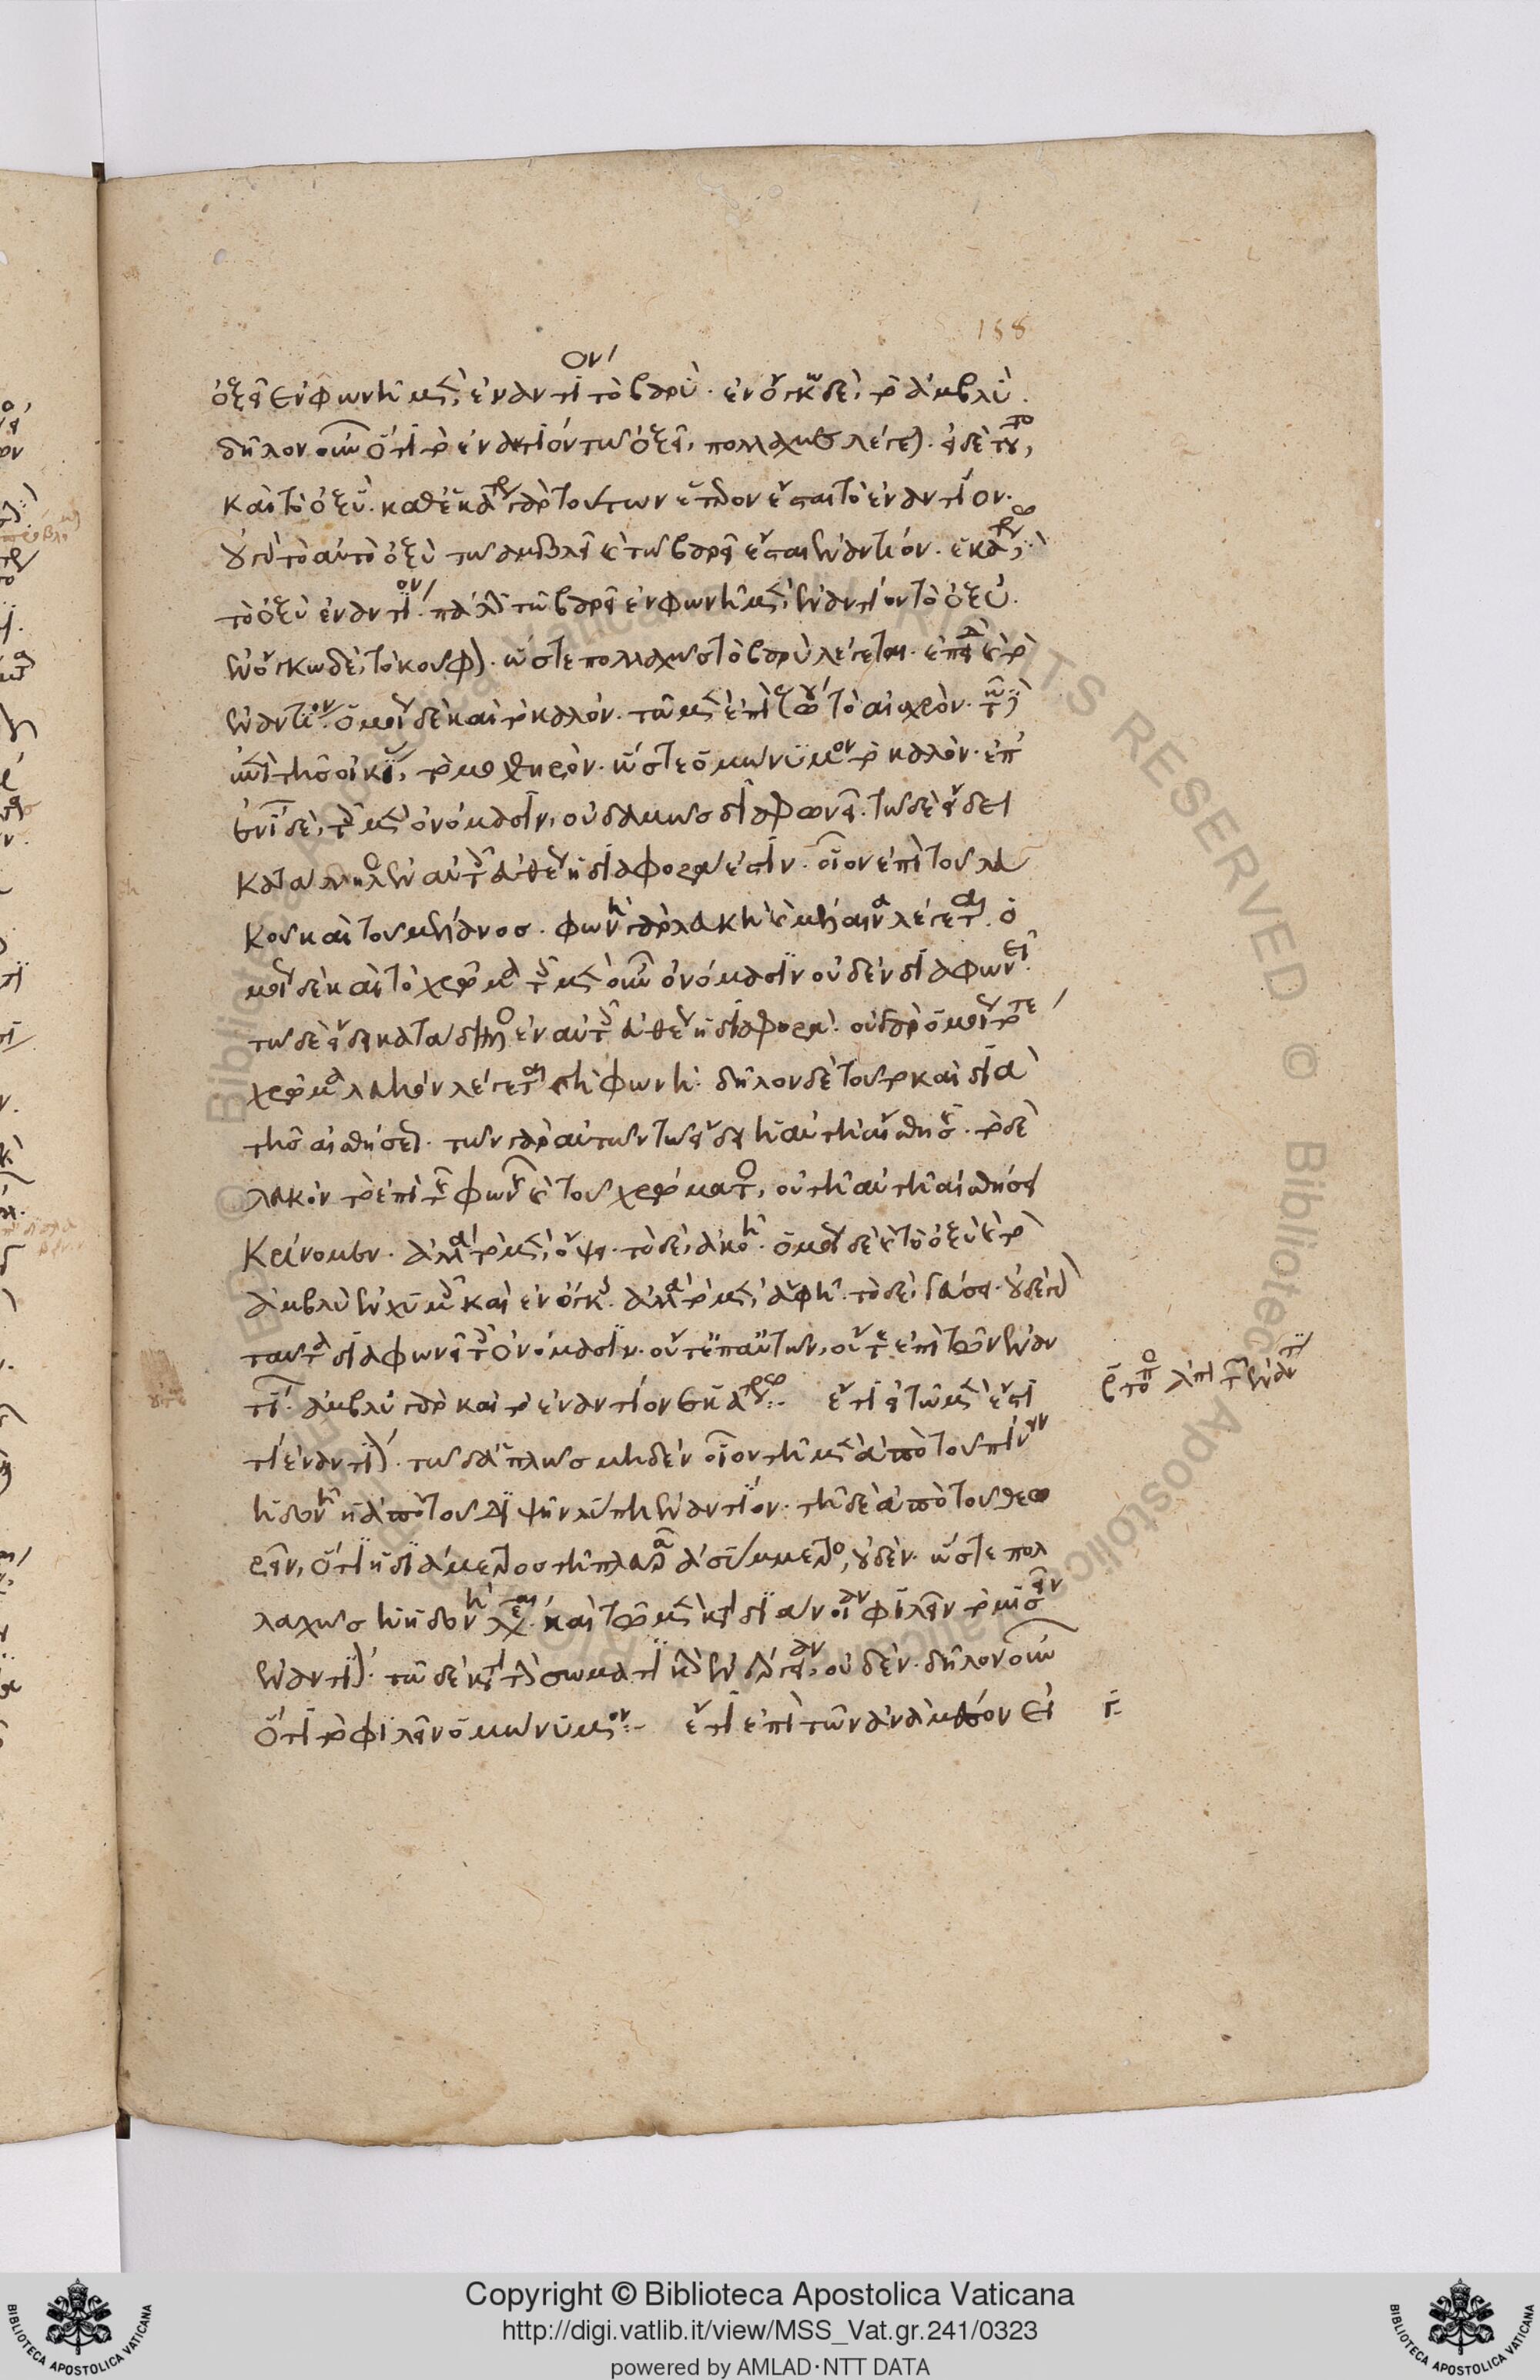 ὀξεῖ ἐν φωνῆ μὲν, ἐναντίον τὸ βαρύ. ἐν ὄγκω δὲ, τὸ ἀμβλύ.
δῆλον οὖν ὅτι τὸ ἐναντίον τῶ ὀξεῖ, πολλαχῶς λέγεται. εἰ δὲ τοῦτο,
καὶ τὸ ὀξύ. καθ' ἕκαστον γὰρ τούτων ἕτερον ἔσται τὸ ἐναντίον.
οὐ γὰρ τὸ αὐτὸ ὀξὺ τῶ ἀμβλεῖ καὶ τῶ βαρεῖ ἔσται ἐναντίον. ἑκατέρω δὲ
τὸ ὀξὺ ἐναντίον. πάλιν τῶ βαρεῖ ἐν φωνῆ μὲν, ἐναντίον τὸ ὀξύ.
ἐν ὄγκω δὲ, τὸ κοῦφον. ὥστε πολλαχῶς τὸ βαρὺ λέγεται. ἐπειδὴ καὶ τὸ
ἐναντίον. ὁμοίως δὲ καὶ τὸ καλόν. τῶ μὲν ἐπὶ ζώου τὸ αἰσχρόν. τῶ δὲ
ἐπὶ τῆς οἰκίας, τὸ μοχθηρόν. ὥστε ὁμώνυμον τὸ καλόν. ἐπ'
ἐνίων δὲ, τοῖς μὲν ὀνόμασιν, οὐδαμῶς διαφωνεῖ. τῶ δὲ εἴδει
κατάδηλος ἐν αὐτοῖς εὐθέως ἡ διαφορά ἐστιν. οἷον ἐπὶ τοῦ λευ
κοῦ καὶ τοῦ μέλανος. φωνὴ γὰρ λευκὴ καὶ μέλαινα λέγεται. ὁ
μοίως δὲ καὶ τὸ χρῶμα. τοῖς μὲν οὖν ὀνόμασιν οὐδὲν διαφωνεῖ.
τῶ δὲ εἴδει κατάδηλος ἐν αὐτοῖς εὐθέως ἡ διαφορά. οὐ γὰρ ὁμοίως τό τε
χρῶμα λευκὸν λέγεται καὶ ἡ φωνή. δῆλον δὲ τοῦτο καὶ διὰ
τῆς αἰσθήσεως. τῶν γὰρ αὐτῶν τῶ εἴδει ἡ αὐτὴ αἴσθησις. τὸ δὲ
λευκὸν τὸ ἐπὶ τῆς φωνῆς καὶ τοῦ χρώματος, οὐ τῆ αὐτῆ αἰσθήσει
κρίνομεν. ἀλλὰ τὸ μὲν, ὄψει. τὸ δὲ, ἀκοῆ. ὁμοίως δὲ καὶ τὸ ὀξὺ καὶ τὸ
ἀμβλὺ ἐν χυμοῖς καὶ ἐν ὄγκοις. ἀλλὰ τὸ μὲν, ἁφῆ. τὸ δὲ, γεύσει. οὐδὲ γὰρ
ταῦτα διαφωνεῖ τοῖς ὀνόμασιν. οὔτε ἐπ' αὐτῶν, οὔτε ἐπὶ τῶν ἐναν
τίων. ἀμβλὺ γὰρ καὶ τὸ ἐναντίον ἑκατέρω. ἔτι εἰ τῶ μὲν ἐστί
τι ἐναντίον. τῶ δ' ἁπλῶς μηδέν. οἷον τῆ μὲν ἀπὸ τοῦ πίνειν
ἡδονῆ ἡ ἀπὸ τοῦ διψῆν λύπη ἐναντίον. τῆ δὲ ἀπὸ τοῦ θεω
ρεῖν, ὅτι ἡ διάμετρος τῆ πλευρᾶ ἀσύμμετρος, οὐδέν. ὥστε πολ
λαχῶς ἡ ἡδονὴ λέγεται. καὶ τῶ μὲν κατὰ διάνοιαν φιλεῖν τὸ μισεῖν
ἐναντίον. τῶ δὲ κατὰ τὴν σωματικὴν ἐνέργειαν, οὐδέν. δῆλον οὖν
ὅτι τὸ φιλεῖν ὁμώνυμον. ἔτι ἐπὶ τῶν ἀνὰ μέσον εἰ